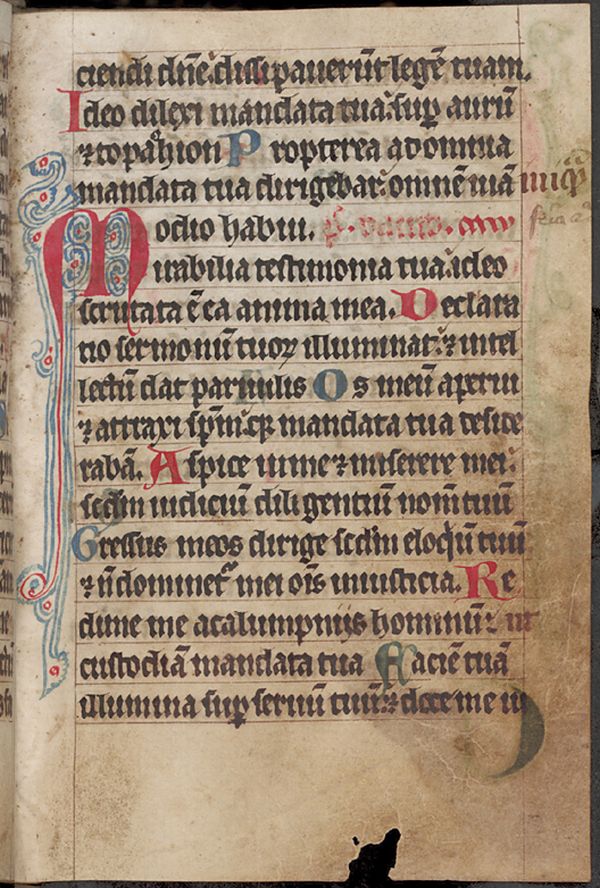 ciendi dñe. dissipauerūt legē tuam.
Ideo dilexi mandata tua. sup̱ aurū
⁊ topahion Propterea ad omnia
mandata tua dirigebar. omnē uiā iniq̄
odio habui.
Mirabilia testimonia tua. ideo
scrutata ē ea anima mea. Declara
tio sermonū tuoꝝ illuminat. ⁊ intel
lectū dat paruulis Os meū aperui
⁊ attraxi sp̄m. q̱ mandata tua deside
rabā. Aspice in me ⁊ miserere mei.
scdm iudiciū diligentiū nom̄ tuū
Gressus meos dirige scdm eloq̄ū tuū
⁊ ñ dominet᷑ mei om̄s iniusticia. Re
dime me a calumpnijs hominū. ut
custodiā mandata tua Faciē tuā
illumina sup̱ seruū tuū. ⁊ doce me iu